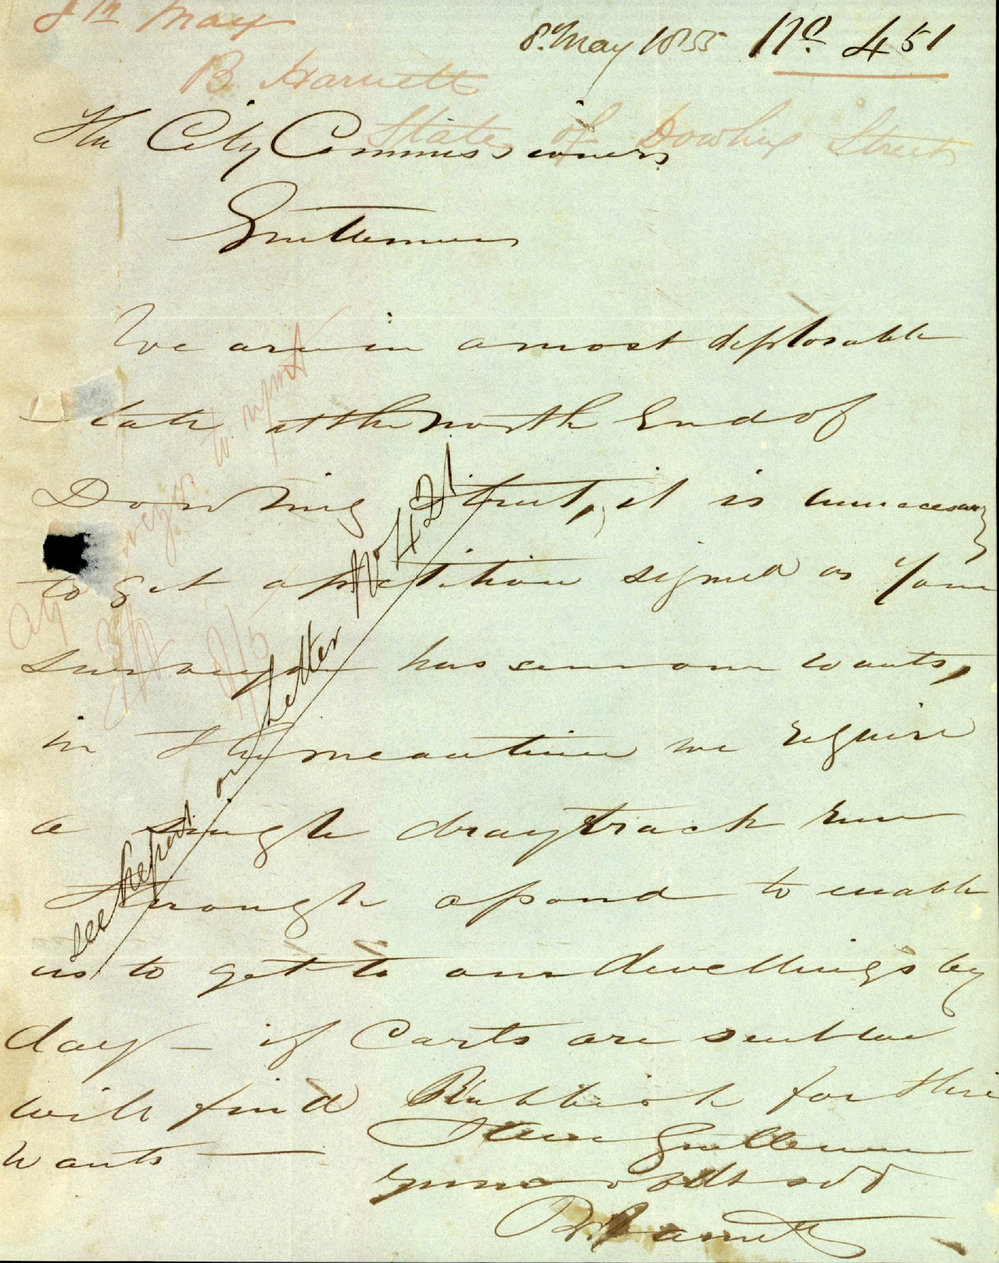 8th May
8th May 1855 No 451
B Harnett
State of Dowling Street
The City Commissioners
Gentlemen
We are in a most deplorable
state at the north End of
Dowling Street, it is unnecessary
to get a petition signed as your
Surveyor has seen our wants,
in the meantime we require
a single dray track run
through a pond to enable
us to get to our dwellings by
day — if Carts are sent we
will find Rubbish for their
wants —
I am Gentlemen
your obdt svt
B. Harnett
City Surveyor to report
see Report on Letter No 421